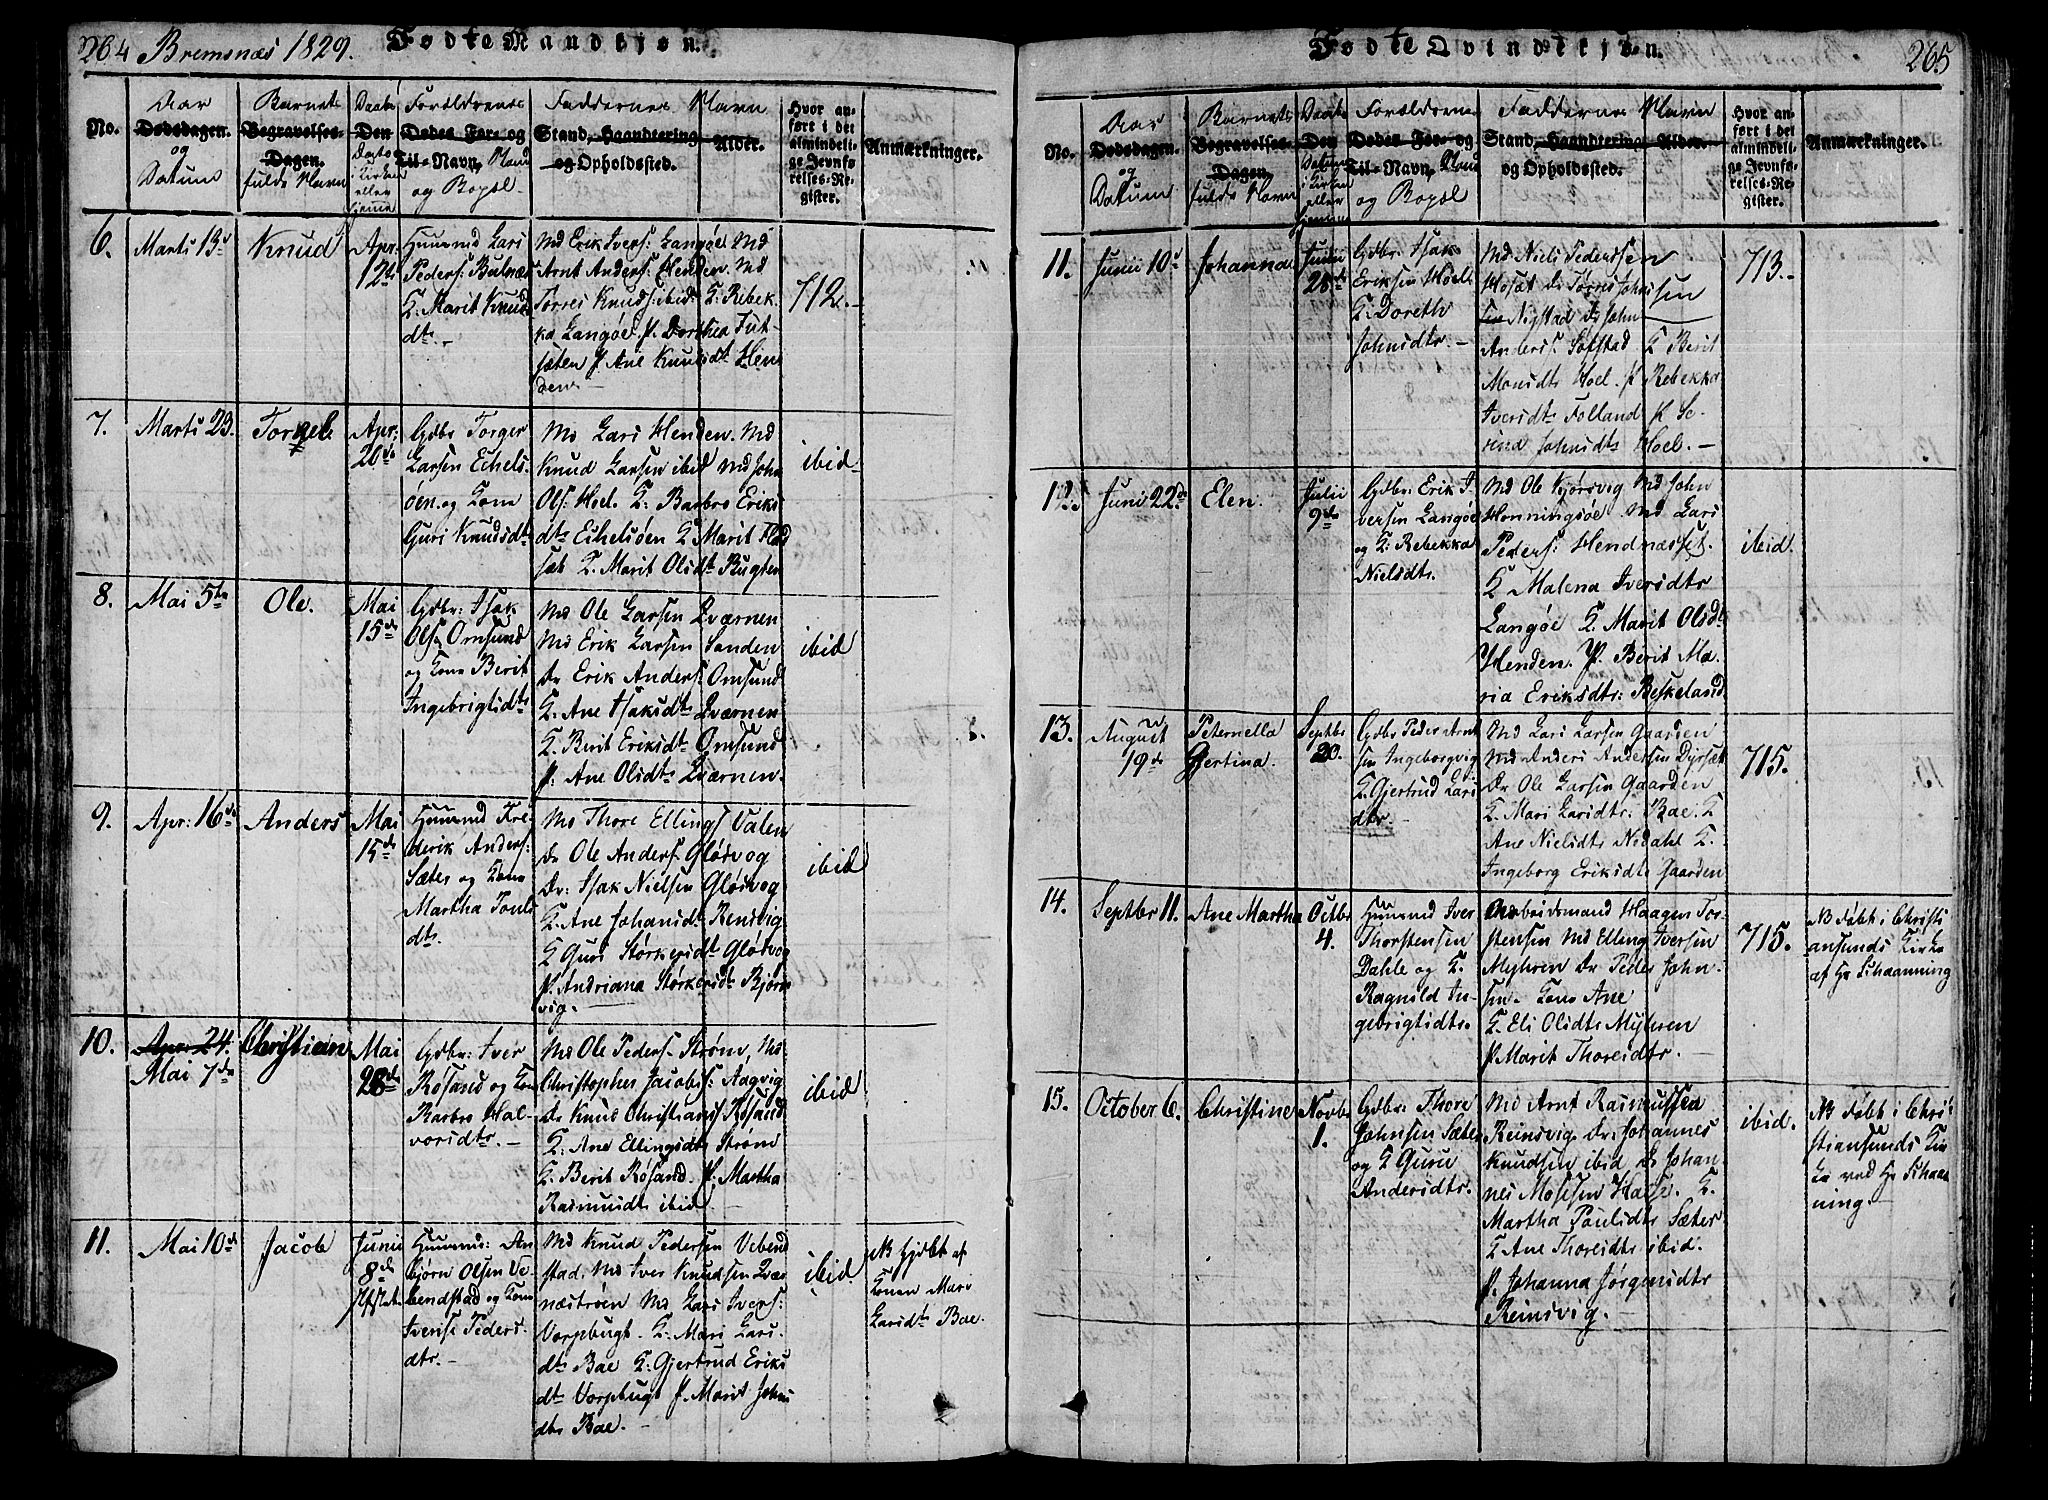 264 Bremsnæs 1829. Fødte Mandkjøn.
No.
Aar
Dødsdagen.
og
Datum
Barnets
Begravelses-
Dagen.
fulde Navn
Daabs
Den
Dags
i Kirken
eller
hjemme
Forældrenes
Dødes For- og
Til-Navn, Stand
og Bopæl
Faddernes Navn
Stand, Haandtering
og Opholdssted.
Alder.
Hvor an-
ført i det
almindeli-
ge Jevnfø-
relses-Re-
gister.
Anmærkninger.
6.
Marts 13de
Knud
Apr.
12te
Huusmd Lars
Peders: Bulnæs
K. Marit Knuds
dtr. -
Md Erik Ivers: Langøe Md
Arnt Anders: Henden. Md
Torres Knuds: ibid: K: Rebek-
ka Langøe P. Dorthea Fut-
sæten P. Ane Knudsdt Hen
den. -
712. -
7.
Marts 23.
Torkel.
Apr:
20de
Gdbr Torger
Larsen Eikels-
øen. og Kone
Guri Knudsdtr
Md Lars Henden. Md
Knud Larsen ibid Md John
Ols: Hoel. K: Barbro Eriks
dtr Eikelsøen K Marit Flad
sæt K. Marit Olsdtr Bugten
ibid-
8.
Mai 5te
Ole.
Mai
15de
Gdbr: Isak
Ols: Omsund
og Kone Berit
Ingebrigtsdtr
Md Ole Larsen Qværnen
Md Erik Larsen Sanden
Dr Erik Anders: Omsund
K: Ane Isaksdtr Qværnen
K. Berit Eriksdtr Omsund
P. Ane Olsdtr Qværnen-
ibid
9.
Apr: 16de
Anders
Mai
15de
Huusmd Fre-
derik Anders:
Sæter og Kone
Martha Pouls
dtr.
Md Thore Ellings Valen
Dr Ole Anders: Gløsvog
Dr: Isak Nielsen Gløsvog
K. Ane Johansdt Rensvig
K Guri Størkersdt Gløsvog
P. Andriana Størkersdtr Bjørn
vig. -
ibid
10.
Apr: 24.
Mai 7de
Christian
Mai
28de
Gdbr: Iver
Røsand og Kone
Barbro Hal-
vorsdtr. -
Md Ole Peders: Strøm, Md
Christopher Jacobs: Aagvig
Dr Knud Christians Røsand
K: Ane Ellingsdtr Strøm
K: Berit Røsand. P. Martha
Rasmusdtr ibid -
ibid
11.
Mai 10de
Jacob
Junii
8de
Huusmd: An-
bjørn Olsen Ve-
bendstad og Kone
Iverise Peders.
dtr. -
Md Knud Pedersen Vebend
stad. Md Iver Knudsen Qvær
næstrøen Md Lars Ivers:
Vorpbugt. K: Mari Lars.
dtr Bae K: Gjertrud Eriks
dtr Vorpbugt P. Marit Johns
dtr Bae. -
ibid
NB hjdbt af
Konen Mari
Larsdtr Bae.
Fødte Qvindekjøn. 265
No.
Aar
Dødsdagen.
og
Datum
Barnets
Begravelses-
Dagen.
fulde Navn
Daabs
Den
Datum
i Kirken
eller
hjemme
Forældrene
Dødes For- og
Til-Navn, Stand
og Bopæl
Faddernes Navn
Stand, Haandtering
og Opholdssted.
Alder.
Hvor an-
ført i det
almindeli-
ge Jevnfø-
relses-Re-
gister.
Anmærkninger.
11.
Junii 10de
Johanna
Junii
28de
Gdbr: Isak
Eriksen Hoel
K. Doreth
Johnsdtr. -
Md Niels Pederssen
Hosæt Dr Torres Johns
sen
Nystad Dr John
Anders: Søfstad K Berit
Monsdtr Hoel. P Rebekka
Iversdtr Folland P. Se-
rina Johnsdtr Hoel. -
713. -
12.
Juni 22de
Elen.
Julii
9de
Gdbr: Erik I-
versen Langøe
og K: Rebekka
Nielsdtr.
Md Ole Kjørsvig Md John
Honningsøe. Md Lars
Peders: Hendnæsset.
K Malena Iversdtr
Langøe K. Marit Olsdtr
Henden. P. Berit Ma-
ria Eriksdtr: Beskeland
ibid.
13.
August
19de
Peternella
Gjertina.
Septbr
20.
Gdbr Peder Arnt
sen Ingeborgvig
K. Gjertrud Lars
dtr. -
Md Lars Larsen Gaarden
Md Anders Andersen Dyrsæt
Dr Ole Larsen Gaarden
K. Mari Larsdtr. Bae. K
Ane Nielsdtr Nedahl K.
Ingeborg Eriksdtr Gaarden
715.
14.
Septbr 11.
Ane Martha
Octbr
4.
Huusmd Iver
Thorstensen
Dahle og K.
Ragnild In-
gebrigtsdtr.
Arbeidsmand Haagen Tor-
stensen Md Elling Iversen
Myhren Dr Peder John-
sen. Kone Ane
K. Eli Olsdtr Myhren
P. Marit Thoresdtr. -
715.
NB døbt i Christi
ansunds Kirke
af Hr Schaanning
15.
October 6.
Christine
Novbr
1.
Gdbr: Thore
Johnsen Sæter
og K Guru
Andersdtr.
Md Arnt Rasmussen
Reinsvig. Dr: Johannes
Knudsen ibid Dr Johan-
nes Mosesen Hasse. K.
Martha Paulsdtr Sæter
K Ane Thoresdtr ibid.
P. Johanna Jørgensdtr
Reinsvig. -
ibid.
NB døbt i Chri-
stiansunds Kir
ke ved Hr Schaa
ning.